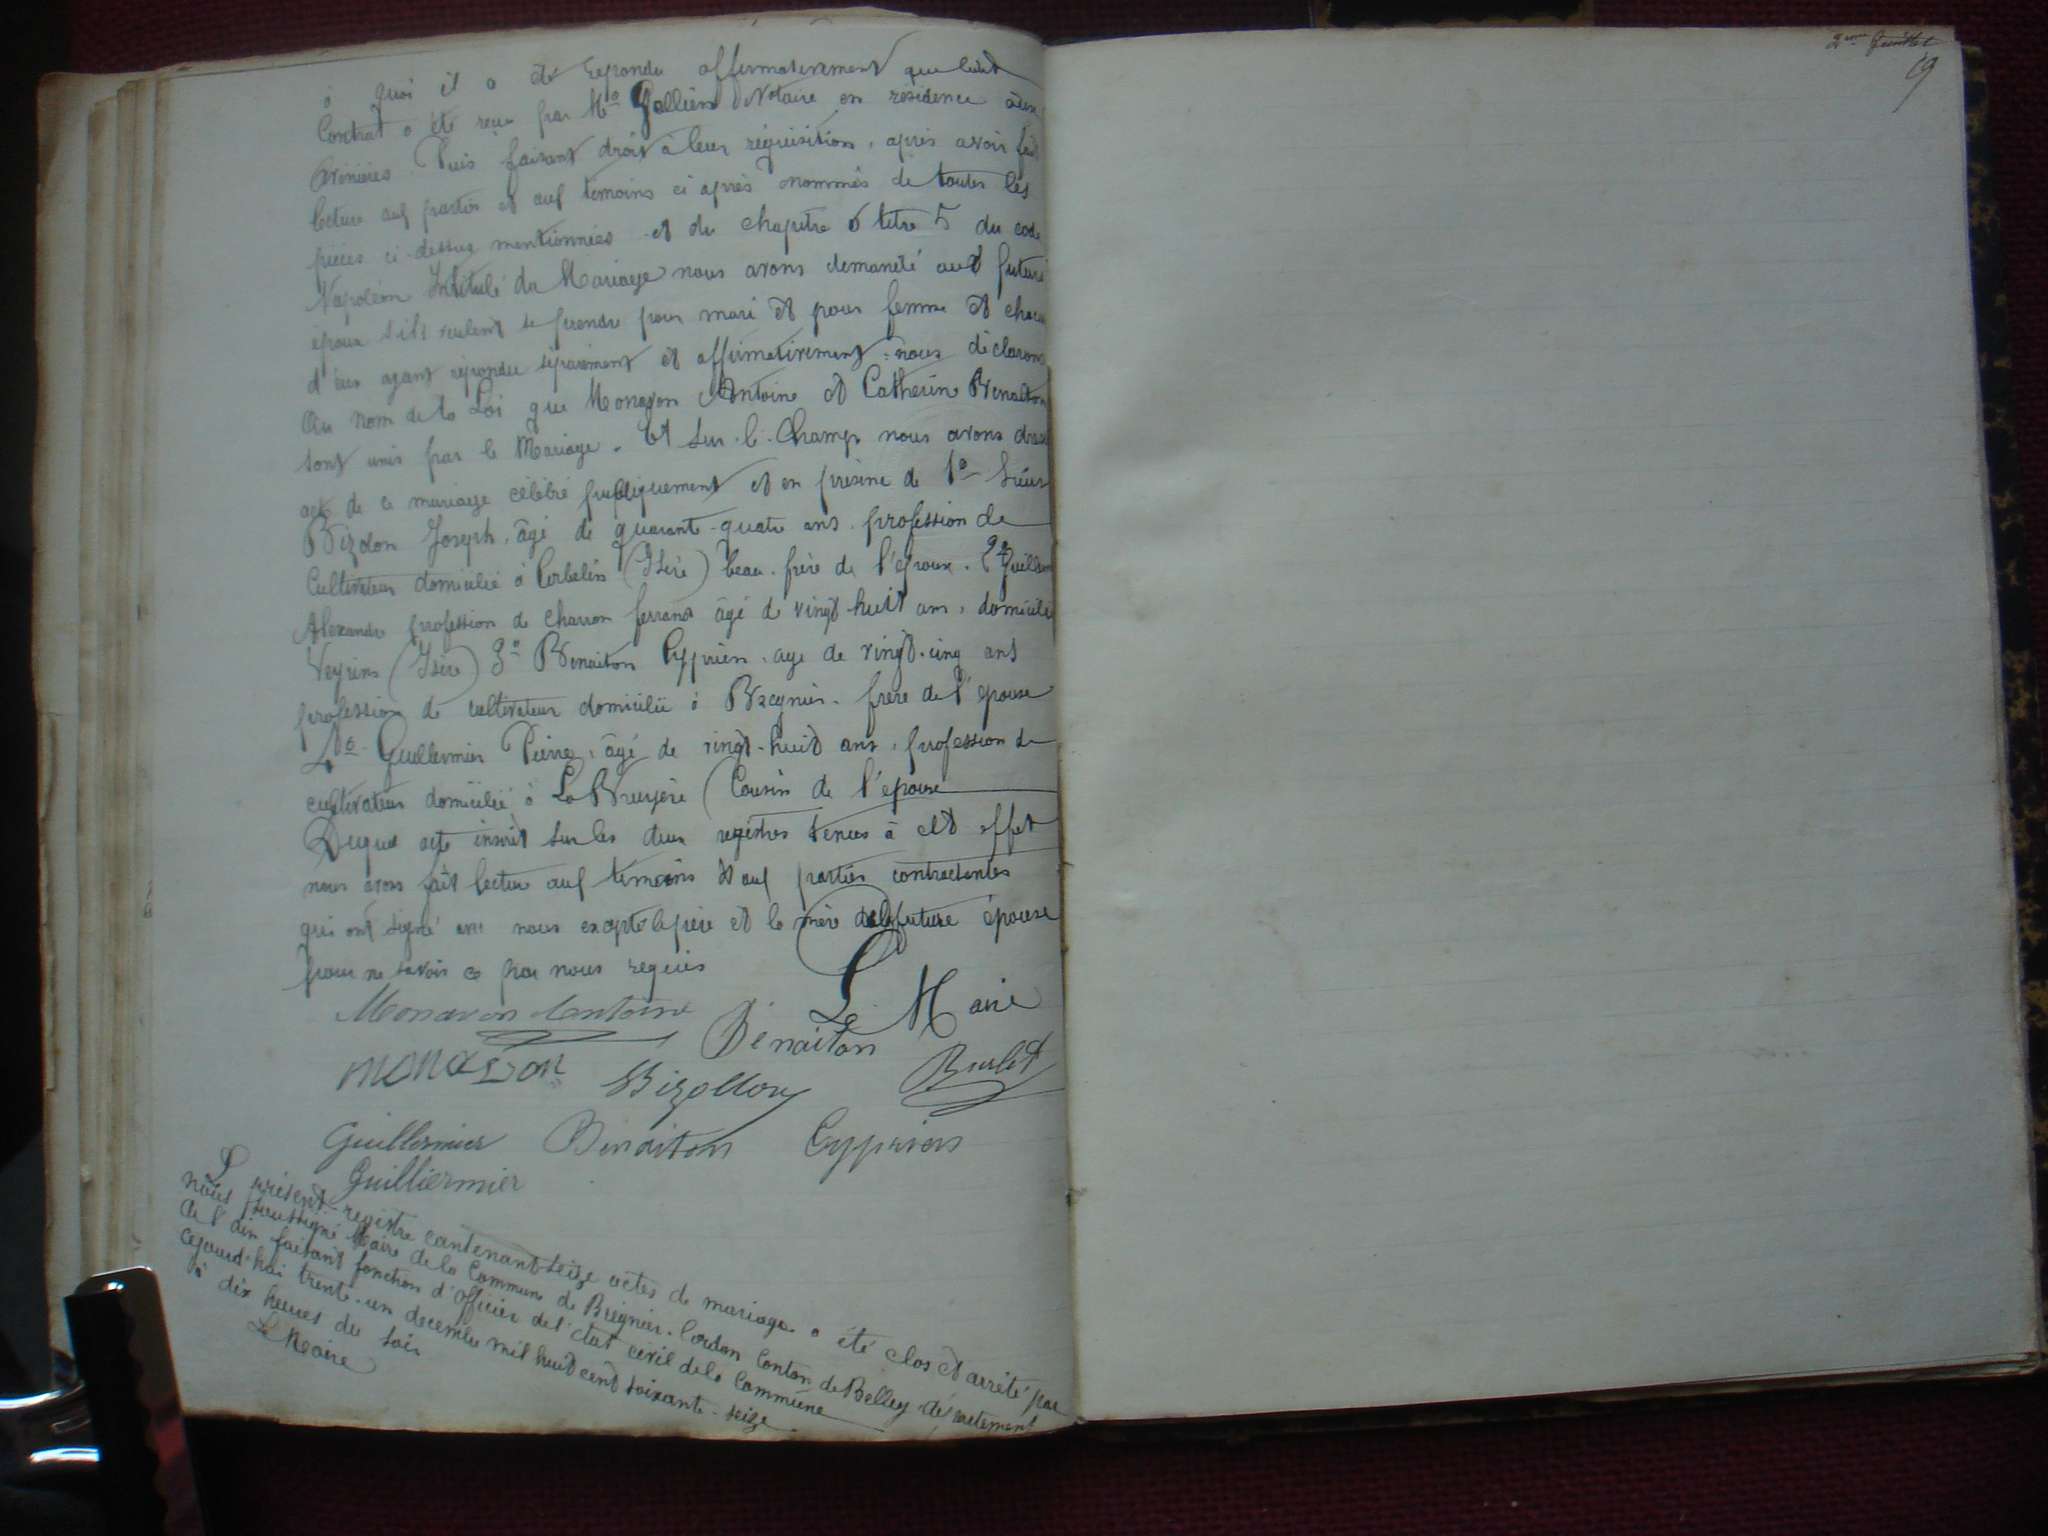 à quoi il a été repondu affirmativement que ledit
Contrat a été reçu par Me Gallien Notaire en résidence aux
Avenières. Puis faisant droit à leur réquisition, après avoir fait
lecture aux parties et aux témoins ci après nommés de toutes les
pièces ci-dessus mentionnées et du chapitre 6 titre 5 du code
Napoléon Intitulé du Mariage nous avons demandé aux futurs
époux s'ils veulent se prendre pour mari et pour femme et chacun
d'eux ayant répondu séparément et affirmativement nous déclarons
Au nom de la Loi que Monavon Antoine et Catherine Benaiton
sont unis par le Mariage. Et sur-le-Champ nous avons dressé
acte de ce mariage célébré publiquement et en présence de 1o Sieur
Bizolon Joseph, âgé de quarante-quatre ans profession de
Cultivateur domicilié à Corbelin (Isère) beau-frère de l'époux. 2o Guillermier
Alexandre profession de charron ferrant âgé de vingt huit ans, domicilié
Veyrins (Isère) 3o Benaiton Cyprien, age de vingt-cinq ans
profession de cultivateur domicilié à Brégnier, frère de l'épouse
4o Guillermier Pierre, âgé de vingt-huit ans, profession de
cultivateur domicilié à La Bruyère (Cousin de l'épouse
Duquel acte inscrit sur les deux registres tenues à cet effet
nous avons fait lecture aux témoins et aux parties contractantes
qui ont signé avec nous excepté le père et la mère de la future épouse
pour ne savoir ce par nous requis
Le Maire
Monavon Antoine
Benaiton
monavon Bizollon Burlet
Guillermier Benaiton Cyprien
Guilliermier
Le présent registre contenant seize actes de mariage a été clos et arrêté par
nous soussigné Maire de la Commune de Brégnier-Cordon Canton de Belley département
de l'Ain faisant fonction d'officier de l'état civil de la Commune
cejourd'hui trente-un decembre mil huit cent soixante-seize
à dix heures du soir
Le Maire
2me feuillet
19